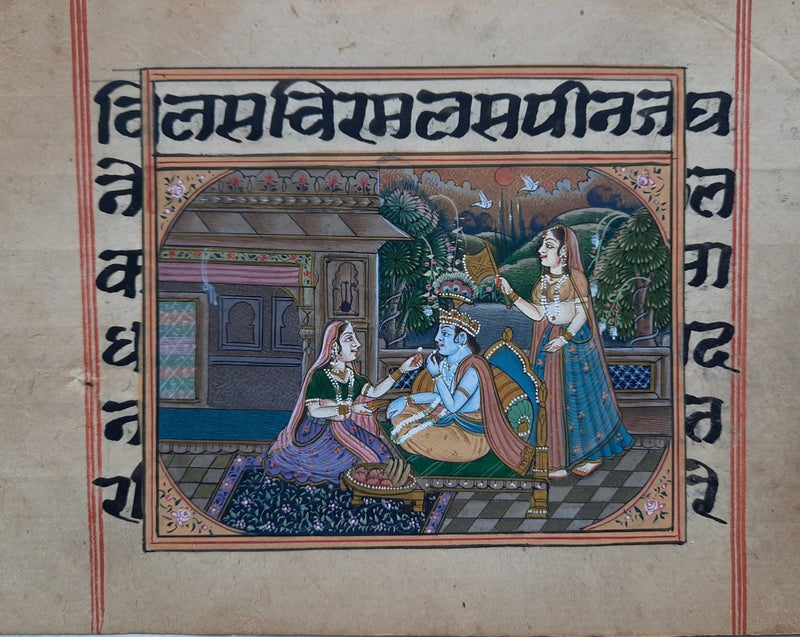 विलसविरमलसपीनजघ
ने ल
क
द
न त
रे